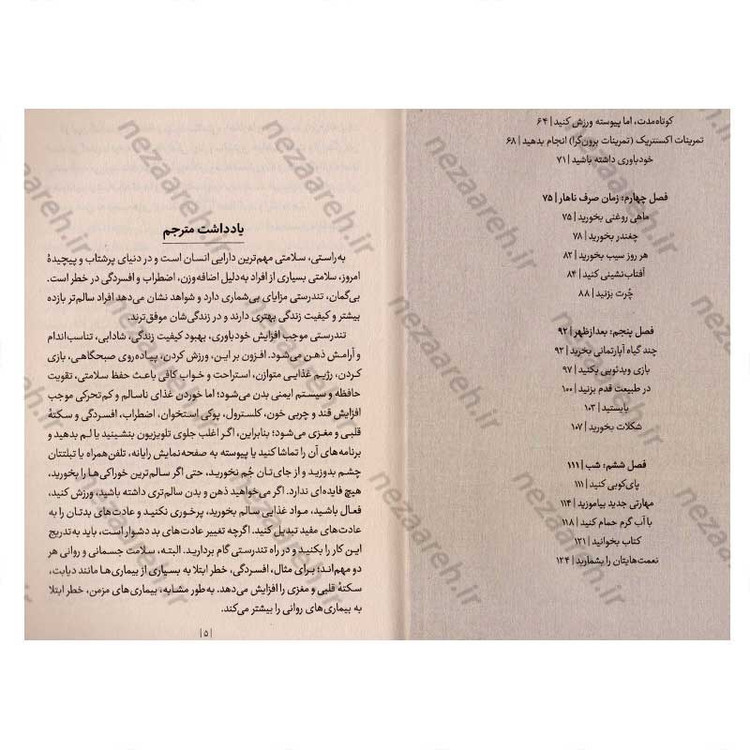 کوتاه‌مدت، اما پیوسته ورزش کنید | ۶۴
تمرینات اکسنتریک (تمرینات برون‌گرا) انجام بدهید | ۶۸
خودباوری داشته باشید | ۷۱
فصل چهارم: زمان صرف ناهار | ۷۵
ماهی روغنی بخورید | ۷۵
چغندر بخورید | ۷۸
هر روز سیب بخورید | ۸۲
آفتاب‌نشینی کنید | ۸۴
چُرت بزنید | ۸۸
فصل پنجم: بعدازظهر | ۹۲
چند گیاه آپارتمانی بخرید | ۹۲
بازی ویدئویی بکنید | ۹۷
در طبیعت قدم بزنید | ۱۰۰
بایستید | ۱۰۳
شکلات بخورید | ۱۰۷
فصل ششم: شب | ۱۱۱
پای‌کوبی کنید | ۱۱۱
مهارتی جدید بیاموزید | ۱۱۴
با آب گرم حمام کنید | ۱۱۸
کتاب بخوانید | ۱۲۱
نعمت‌هایتان را بشمارید | ۱۲۴
یادداشت مترجم
به‌راستی، سلامتی مهم‌ترین دارایی انسان است و در دنیای پرشتاب و پیچیدهٔ
امروز، سلامتی بسیاری از افراد به‌دلیل اضافه‌وزن، اضطراب و افسردگی در خطر است.
بی‌گمان، تندرستی مزایای بی‌شماری دارد و شواهد نشان می‌دهد افراد سالم‌تر بازده
بیشتر و کیفیت زندگی بهتری دارند و در زندگی‌شان موفق‌ترند.
تندرستی موجب افزایش خودباوری، بهبود کیفیت زندگی، شادابی، تناسب‌اندام
و آرامش ذهن می‌شود. افزون بر این، ورزش کردن، پیاده‌روی صبحگاهی، بازی
کردن، رژیم غذایی متوازن، استراحت و خواب کافی باعث حفظ سلامتی، تقویت
حافظه و سیستم ایمنی بدن می‌شود؛ اما خوردن غذای ناسالم و کم‌تحرکی موجب
افزایش قند و چربی خون، کلسترول، پوکی استخوان، اضطراب، افسردگی و سکتهٔ
قلبی و مغزی می‌شود؛ بنابراین، اگر اغلب جلوی تلویزیون بنشینید یا لم بدهید و
برنامه‌های آن را تماشا کنید یا پیوسته به صفحه‌نمایش رایانه، تلفن‌همراه یا تبلتتان
چشم بدوزید و از جای‌تان جُم نخورید، حتی اگر سالم‌ترین خوراکی‌ها را بخورید،
هیچ فایده‌ای ندارد. اگر می‌خواهید ذهن و بدن سالم‌تری داشته باشید، ورزش کنید،
فعال باشید، مواد غذایی سالم بخورید، پرخوری نکنید و عادت‌های بدتان را به
عادت‌های مفید تبدیل کنید. اگرچه تغییر عادت‌های بد دشوار است، باید به‌تدریج
این کار را بکنید و در راه تندرستی گام بردارید. البته، سلامت جسمانی و روانی هر
دو مهم‌اند؛ برای مثال، افسردگی، خطر ابتلا به بسیاری از بیماری‌ها مانند دیابت،
سکتهٔ قلبی و مغزی را افزایش می‌دهد. به‌طور مشابه، بیماری‌های مزمن، خطر ابتلا
به بیماری‌های روانی را بیشتر می‌کند.
| ۵ |
nezaareh.ir
nezaareh.ir
nezaareh.ir
nezaareh.ir
nezaareh.ir
nezaareh.ir
nezaareh.ir
nezaareh.ir
nezaareh.ir
nezaareh.ir
nezaareh.ir
nezaareh.ir